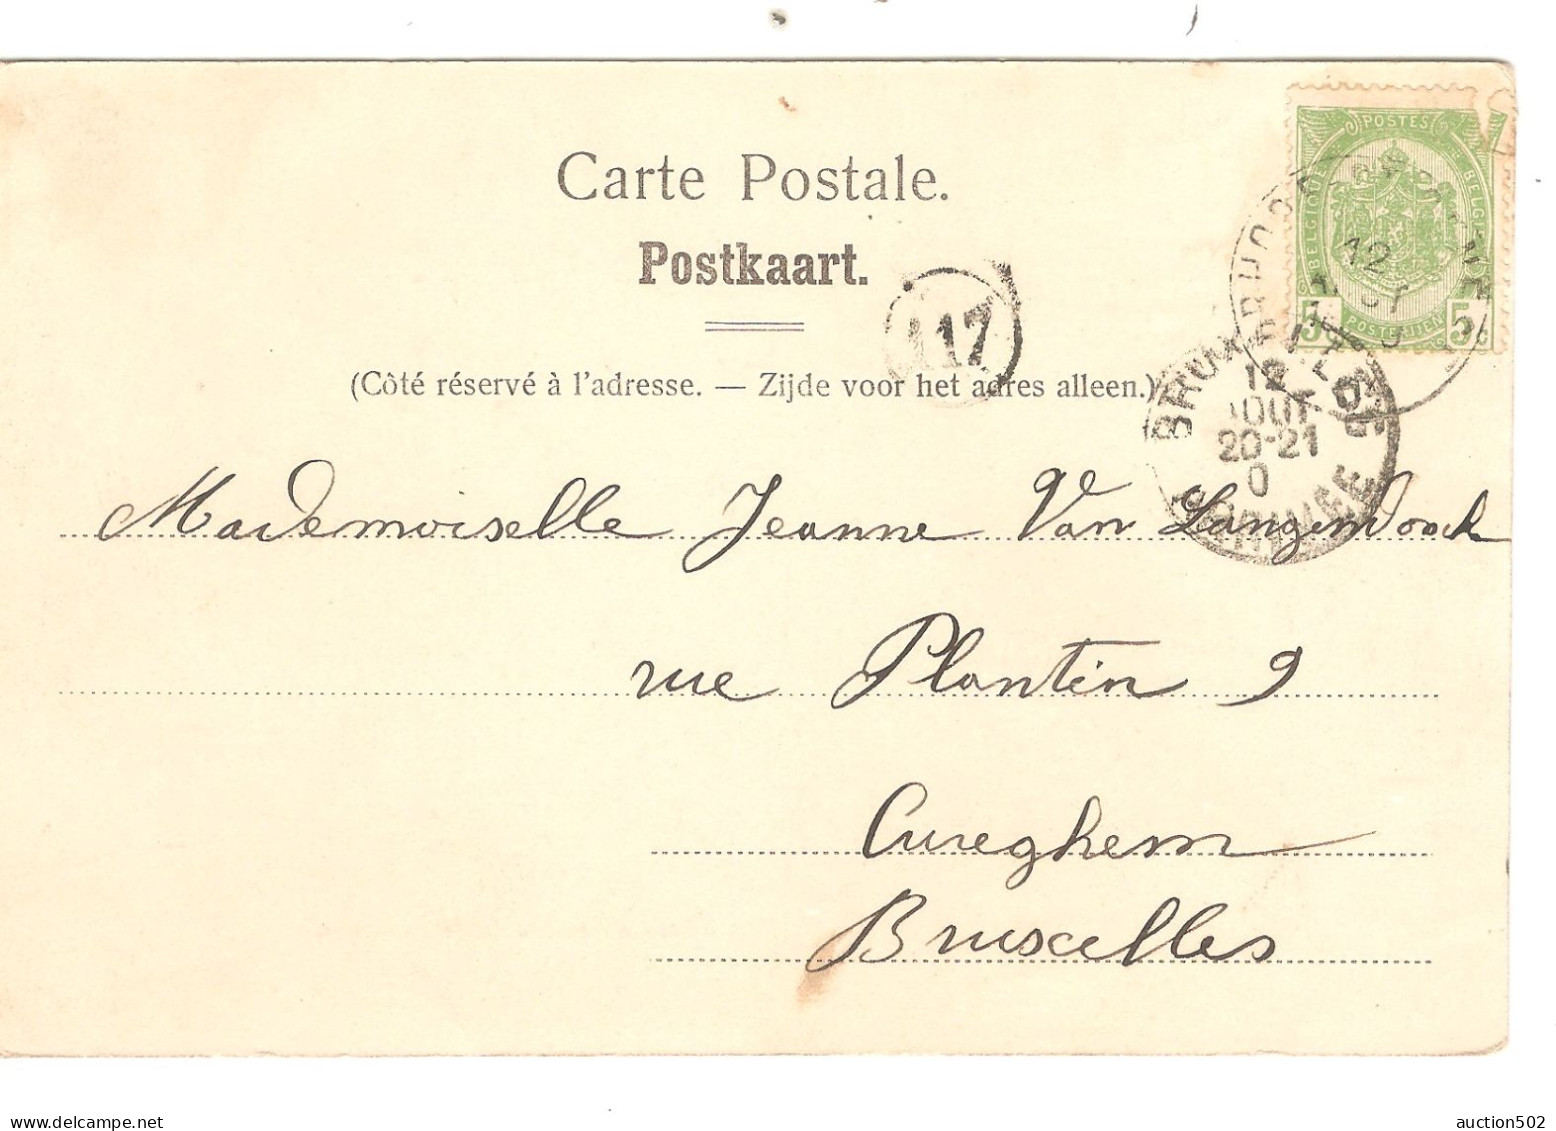 Carte Postale.
Postkaart.
117
(Côté réservé à l'adresse. — Zijde voor het adres alleen.)
POSTES
BELGIQUE
BELGIE
5c
POSTERIJEN
5c
12
BRUXELLES
12
AOUT
20-21
0
ARRIVEE
Mademoiselle Jeanne Van Langendonck
rue Plantin 9
Cureghem
Bruxelles
delcampe.net
auction502